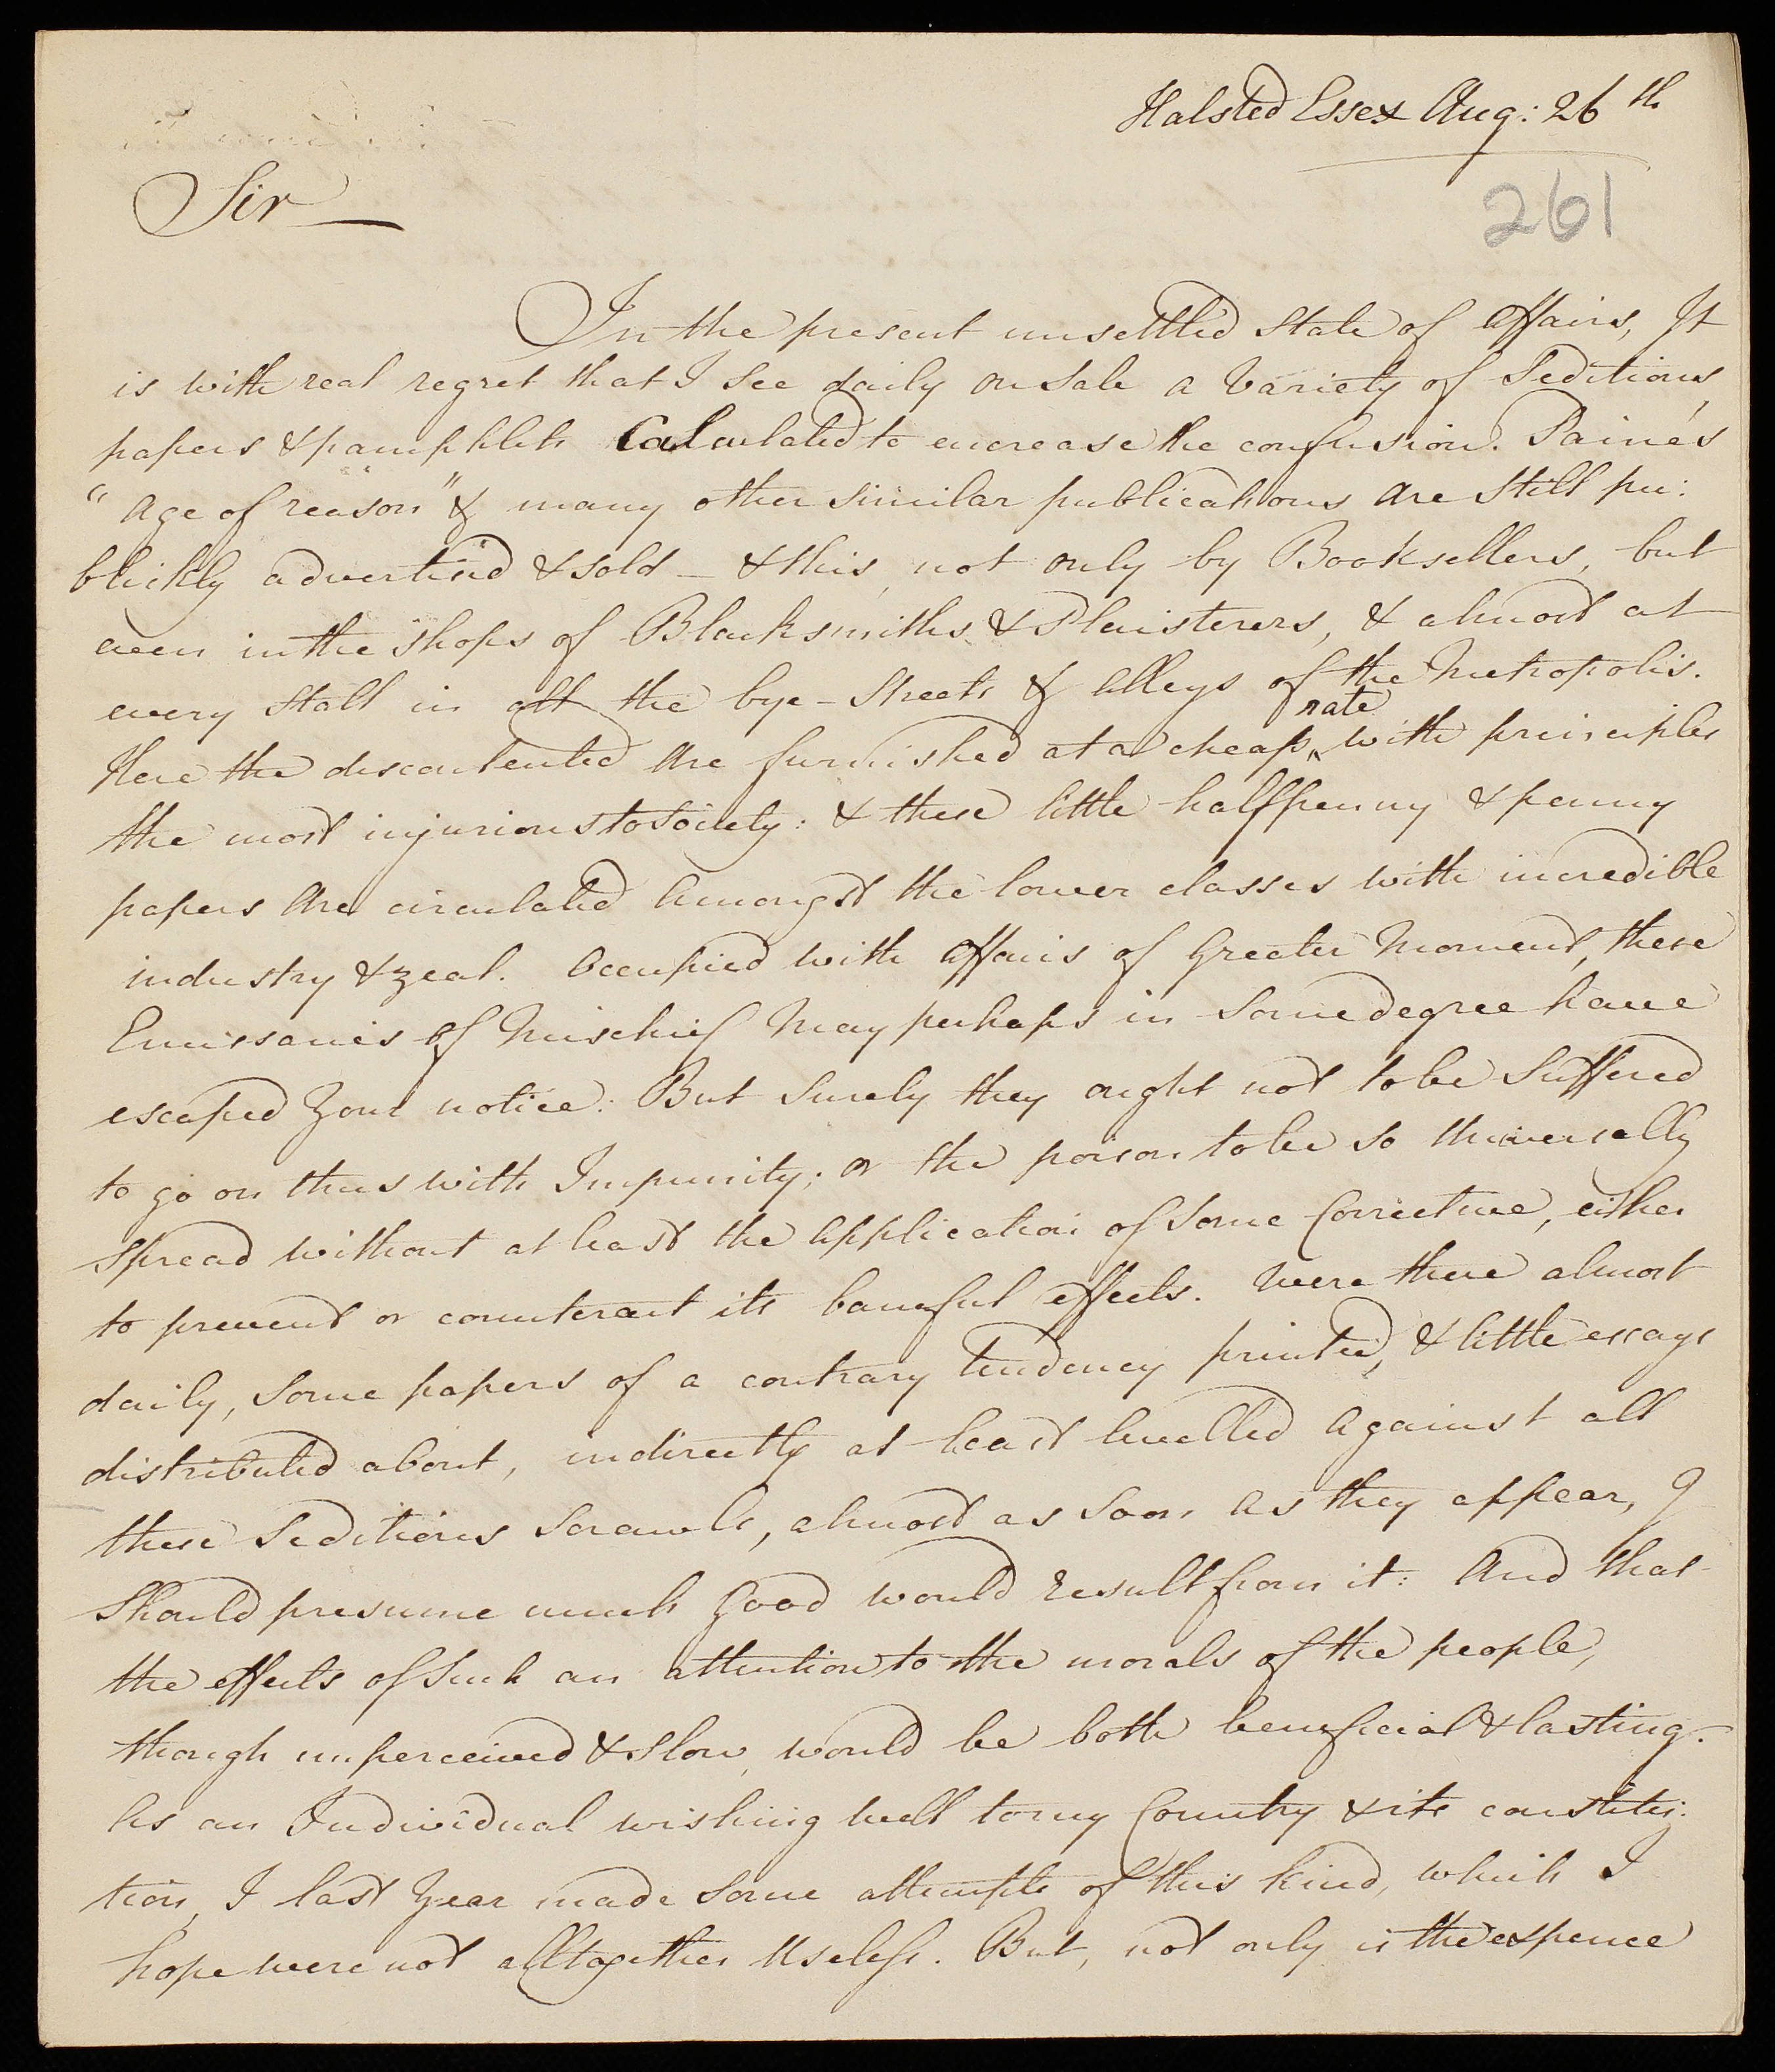 Halsted Essex Aug: 26th
261
Sir
In the present unsettled State of affairs, It
is with real regret that I see daily on Sale a Variety of Seditious
papers & pamphlets Calculated to encrease the confusion. Paine's
"Age of reason" & many other similar publications are still pu:
blickly advertised & sold - & this, not only by Booksellers, but
even in the Shops of Blacksmiths & Plaisterers, & almost at
every Stall in all the bye-Streets & Alleys of the Metropolis.
Here the discontented are furnished at a cheap rate with principles
the most injurious to Society: & these little halfpenny & penny
papers are circulated amongst the lower classes with incredible
industry & zeal. Occupied with affairs of Greater Moment, these
Emissaries of Mischief May perhaps in Some degree have
escaped Your notice: But Surely they ought not to be Suffered
to go on thus with Impunity; or the poison to be so Universally
Spread without at least the Application of Some Corrective, either
to prevent or counteract its baneful effects. Were there almost
daily, Some papers of a contrary tendency printed, & little essays
distributed about, indirectly at least levelled Against all
these Seditious Scrawls, almost as Soon As they appear, I
Should presume much Good would result from it: And that
the effects of Such an attention to the morals of the people,
though unperceived & slow, would be both beneficial & lasting.
As an Individual wishing well to my Country & its constitu:
tion, I last Year made Some attempts of this kind, which I
hope were not alltogether Useless. But, not only is the expence